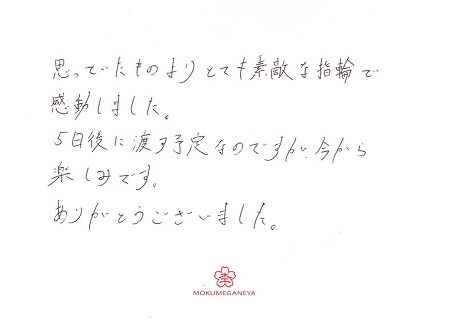 思っていたものよりとても素敵な指輪で
感動しました。
5日後に渡す予定なのですが、今から
楽しみです。
ありがとうございました。
MOKUMEGANEYA